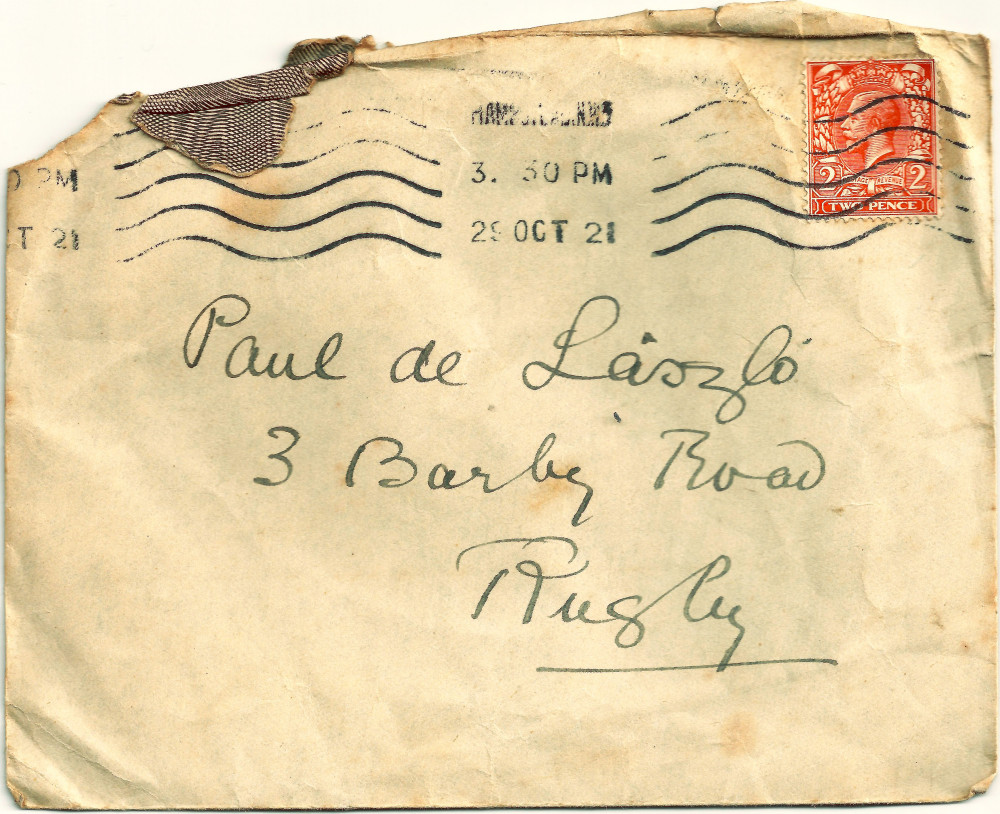 HAMPSTEAD.N.W.3
3. 30 PM
29 OCT 21
PM
T 21
POSTAGE REVENUE
2 2
TWO PENCE
Paul de László
3 Barby Road
Rugby